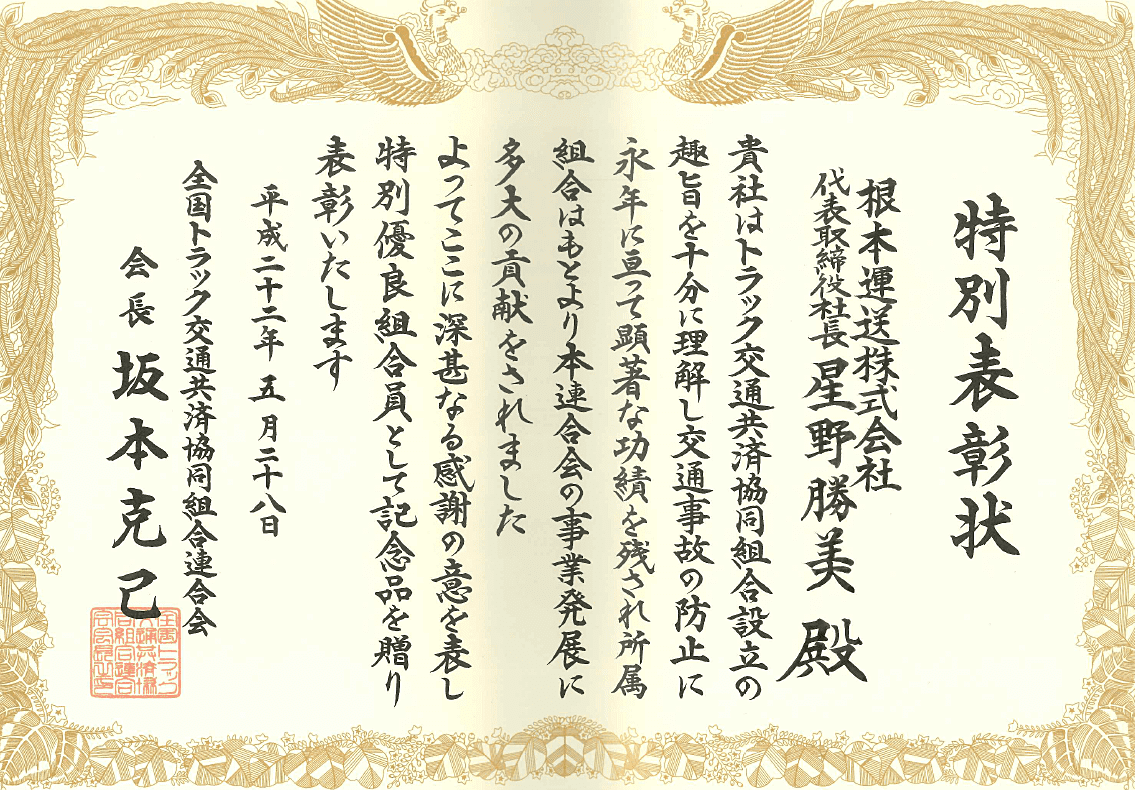 特別表彰状
根本運送株式会社
代表取締役社長 星野勝美 殿
貴社はトラック交通共済協同組合設立の
趣旨を十分に理解し交通事故の防止に
永年に亘って顕著な功績を残され所属
組合はもとより本連合会の事業発展に
多大の貢献をされました
よってここに深甚なる感謝の意を表し
特別優良組合員として記念品を贈り
表彰いたします
平成二十二年 五月二十八日
全国トラック交通共済協同組合連合会
会長 坂本克己